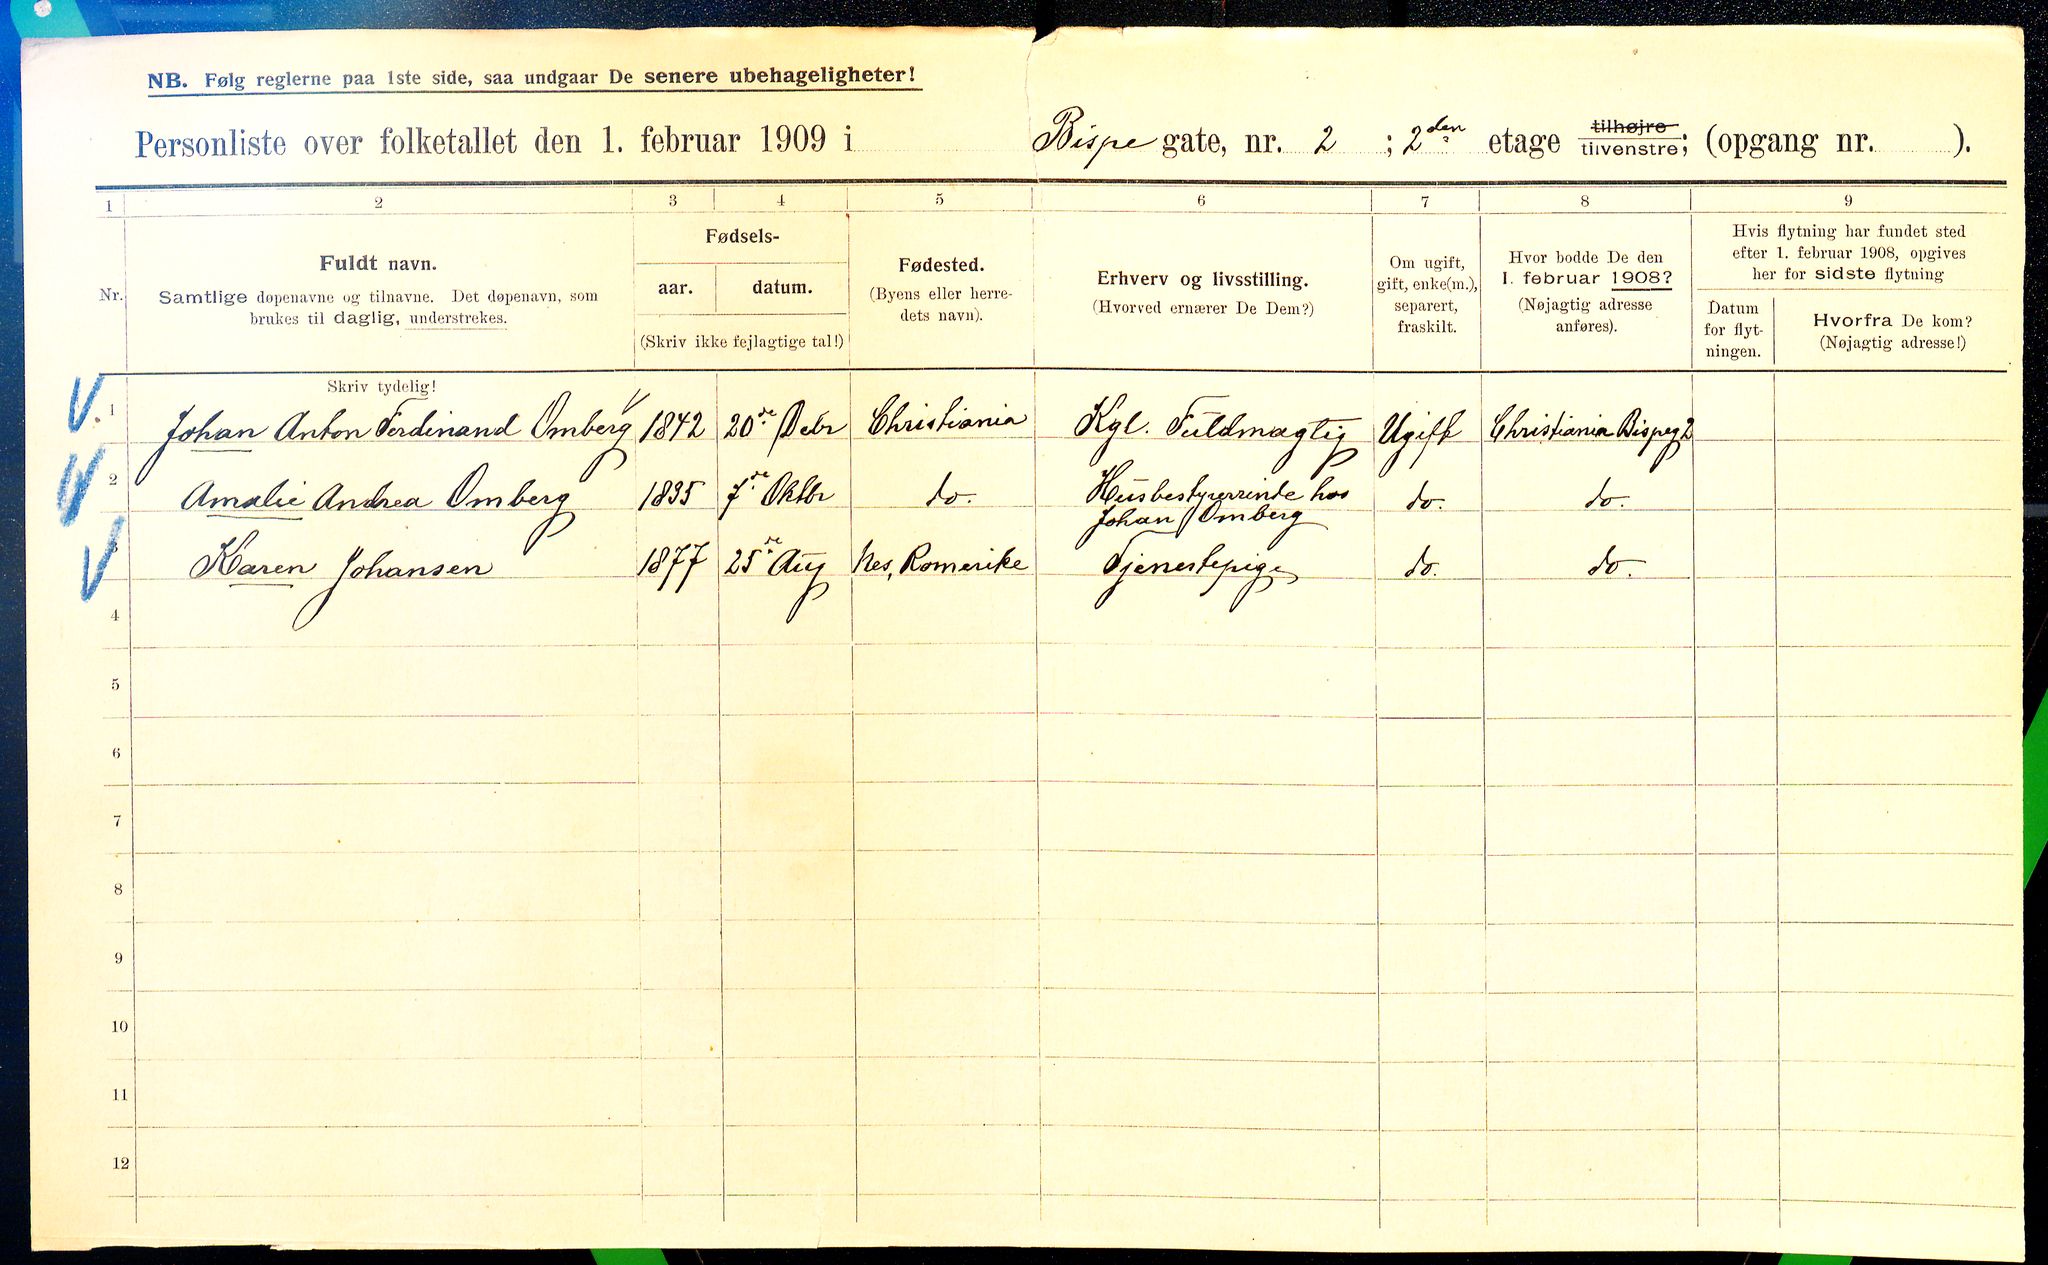 NB. Følg reglerne paa 1ste side, saa undgaar De senere ubehageligheter!
Personliste over folketallet den 1. februar 1909 i Bispe gate, nr. 2 ; 2den etage tilhøjre tilvenstre; (opgang nr. ).
1 2 3 4 5 6 7 8 9
Nr.
Fuldt navn.
Samtlige døpenavne og tilnavne. Det døpenavn, som
brukes til daglig, understrekes.
Fødsels-
aar. datum.
(Skriv ikke fejlagtige tal!)
Fødested.
(Byens eller herre-
dets navn).
Erhverv og livsstilling.
(Hvorved ernærer De Dem?)
Om ugift,
gift, enke(m.),
separert,
fraskilt.
Hvor bodde De den
1. februar 1908?
(Nøjagtig adresse
anføres).
Hvis flytning har fundet sted
efter 1. februar 1908, opgives
her for sidste flytning
Datum
for flyt-
ningen.
Hvorfra De kom?
(Nøjagtig adresse!)
Skriv tydelig!
1 Johan Anton Ferdinand Omberg 1842 20de Debr Christiania Kgl. Fuldmægtig Ugift Christiania Bispeg 2
2 Amalie Andrea Omberg 1835 7de Oktbr do. Husbestyrerinde hos
Johan Omberg do. do.
3 Karen Johansen 1877 25de Aug Nes, Romerike Tjenestepige do. do.
4
5
6
7
8
9
10
11
12